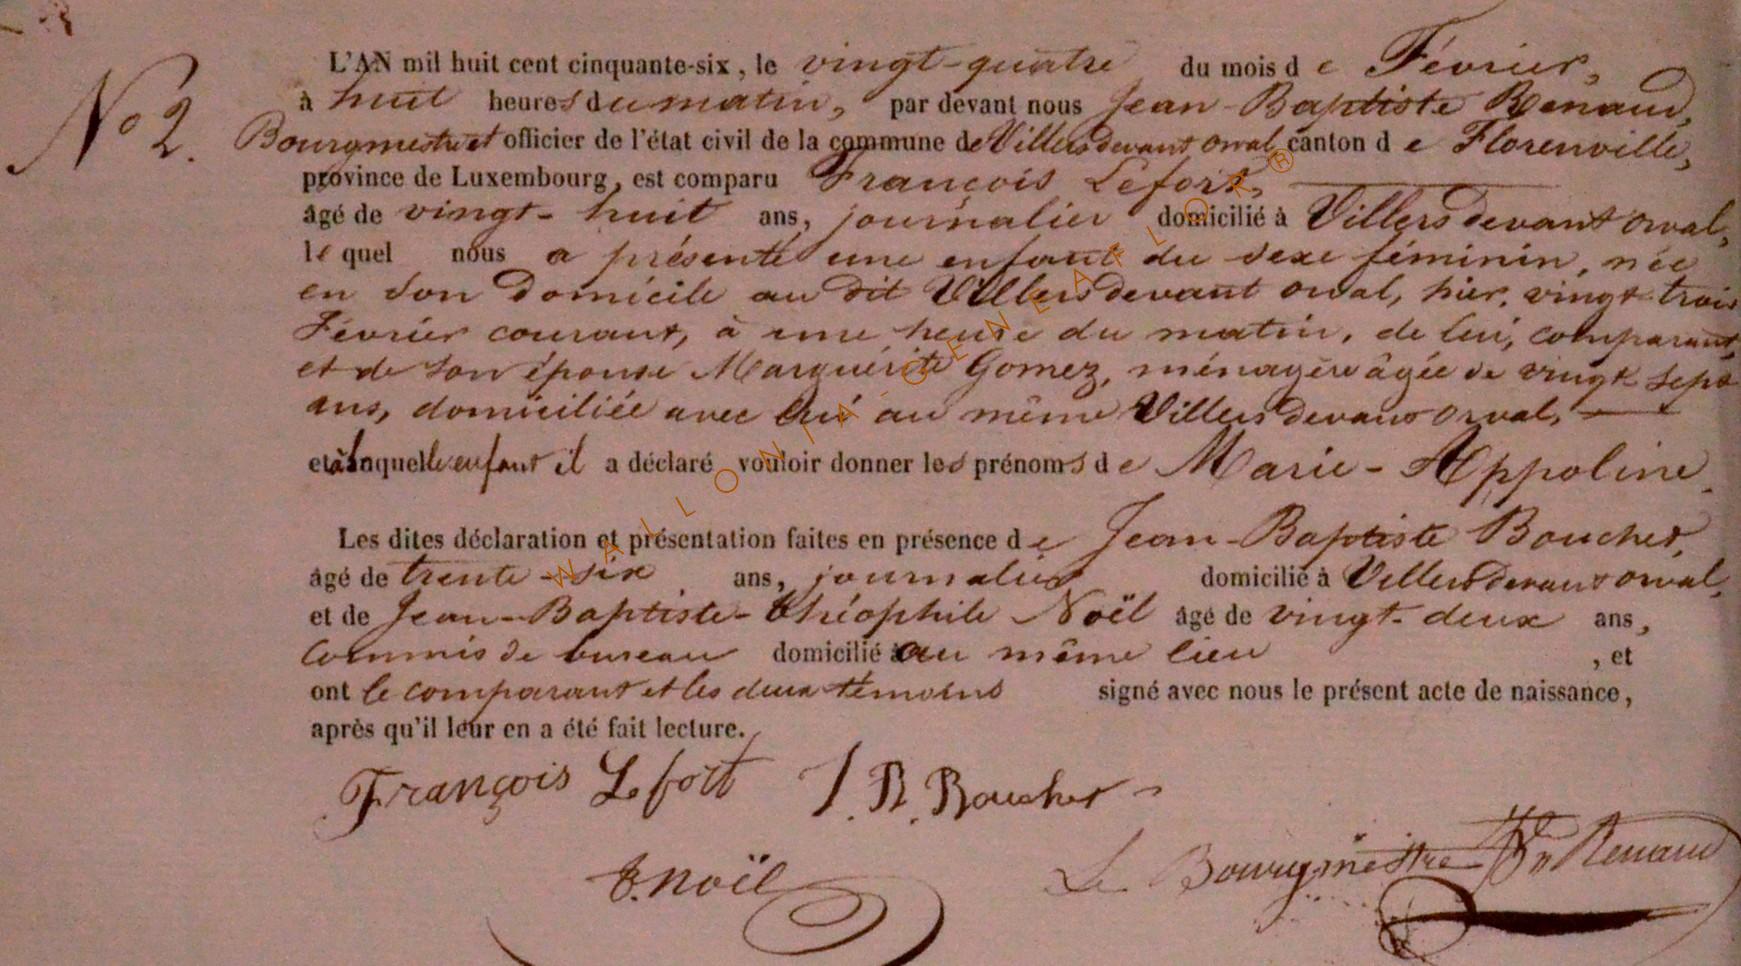 No 2.
L'AN mil huit cent cinquante-six, le vingt-quatre du mois de Février,
à huit heures du matin, par devant nous Jean-Baptiste Renaud,
Bourgmestre et officier de l'état civil de la commune de Villers devant orval, canton de Florenville,
province de Luxembourg, est comparu François Lefort,
âgé de vingt-huit ans, journalier domicilié à Villers devant orval,
lequel nous a présenté une enfant du sexe féminin, née
en son domicile au dit Villers devant orval, hier, vingt trois
Février courant, à une heure du matin, de lui, comparant,
et de son épouse Marguérite Gomez, ménagère âgée de vingt sept
ans, domiciliée avec lui au même Villers devant orval,
et à laquelle enfant il a déclaré vouloir donner les prénoms de Marie-Appoline.
Les dites déclaration et présentation faites en présence de Jean-Baptiste Boucher,
âgé de trente-six ans, journalier domicilié à Villers devant orval,
et de Jean-Baptiste-théophile Noël âgé de vingt-deux ans,
Commis de bureau domicilié au même lieu, et
ont le comparant et les deux témoins signé avec nous le présent acte de naissance,
après qu'il leur en a été fait lecture.
François Lefort J. B. Boucher
T. Noël
Le Bourgmestre Renaud
WALLONIA-GENEAFLOR ®